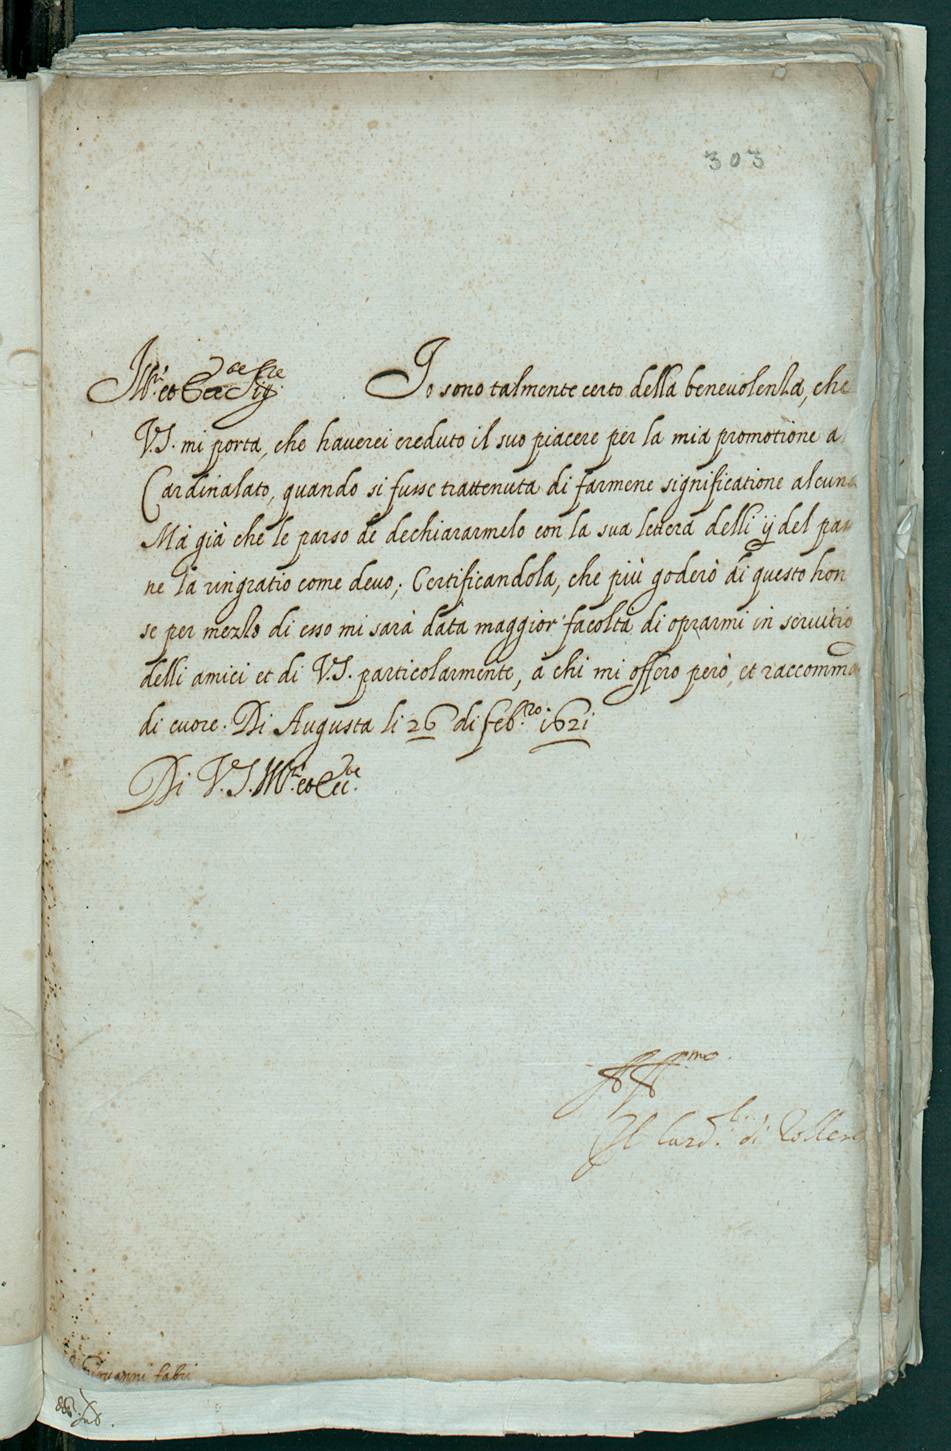 303
Ill.re et Ecc.te Sig.re Io sono talmente certo della benevolenza, che
V.S. mi porta, che haverei creduto il suo piacere per la mia promotione a
Cardinalato, quando si fusse trattenuta di farmene significatione alcuna
Mà già che le parso de dechiararmelo con la sua lettera delli ij del pa
ne la ringratio come devo; Certificandola, che più goderò di questo hon
se per mezzo di esso mi sarà data maggior facoltà di oprarmi in servitio
delli amici et di V.S. particolarmente, à chi mi offero però, et raccomma
di cuore. Di Augusta li 26 di feb.ro 1621
Di V.S. Ill.re et Ecc.te
Aff.mo
Il Card.l di Zoller
Giovanni fabri